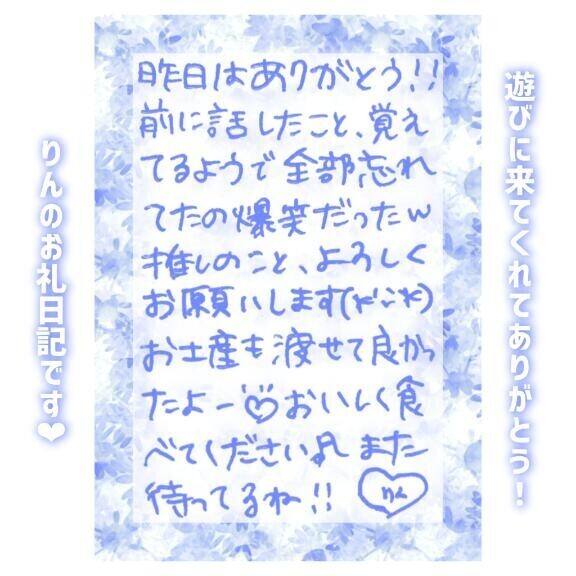 遊びに来てくれてありがとう！
昨日はありがとう!!
前に話したこと、覚え
てるようで全部忘れ
てたの爆笑だったw
推しのこと、よろしく
お願いします
お土産も渡せて良かっ
たよー♡おいしく食
べてください♪ また
待ってるね!! りん
りんのお礼日記です❤